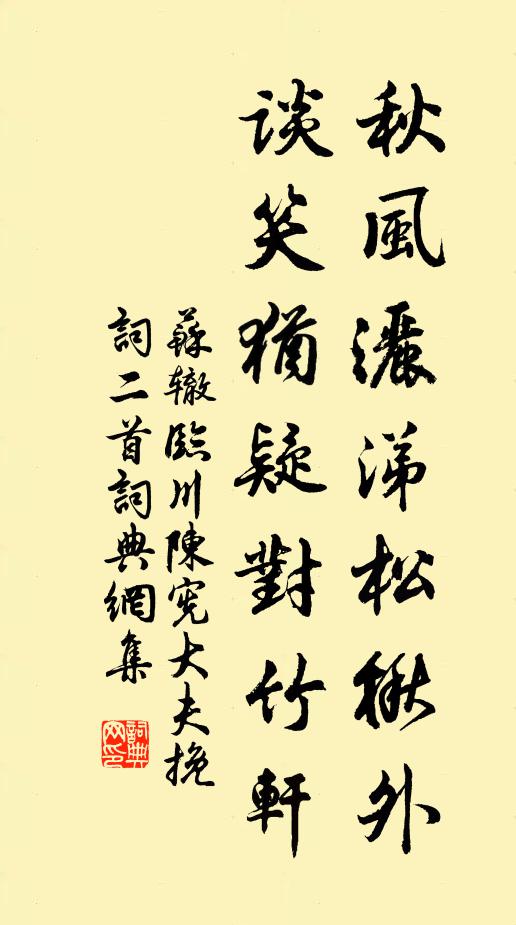 秋風灑涕松楸外
谈笑猶疑對竹軒
蘇辙臨川陳宪大夫挽
詞二首詞典網集
詞典
网印